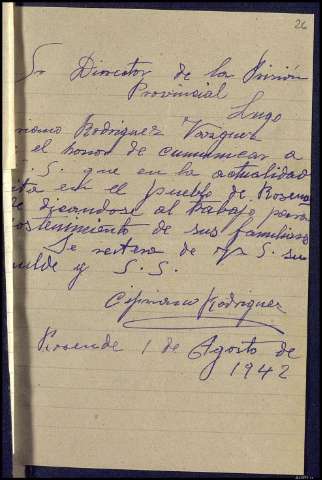 26
Sr Director de la Prisión
Provincial
Lugo
Rodriguez Vazquez
el honor de comunicar a
S. S. que en la actualidad
en el pueblo de
dicandose al trabajo para
sostenimiento de sus familiares
Se reitera de V. S. su
milde y S. S.
Cipriano Rodriguez
Rosende 1 de Agosto de
1942